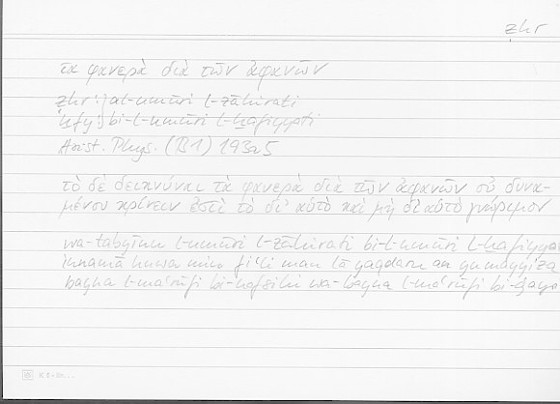 ẓhr
τὰ φανερὰ διὰ τῶν ἀφανῶν
ẓhr: al-umūri l-ẓāhirati
ḫfy: bi-l-umūri l-ḫafiyyati
Arist. Phys. (B1) 193a5
τὸ δὲ δεικνύναι τὰ φανερὰ διὰ τῶν ἀφανῶν οὐ δυνα-
μένου κρίνειν ἐστὶ τὸ δι' αὑτὸ καὶ μὴ δι' αὑτὸ γνώριμον
wa-tabyīnu l-umūri l-ẓāhirati bi-l-umūri l-ḫafiyya
innamā huwa min fiʿli man lā yaqdaru an yumayyiza
bayna l-maʿrūfi bi-nafsihi wa-bayna l-maʿrūfi bi-ġayr